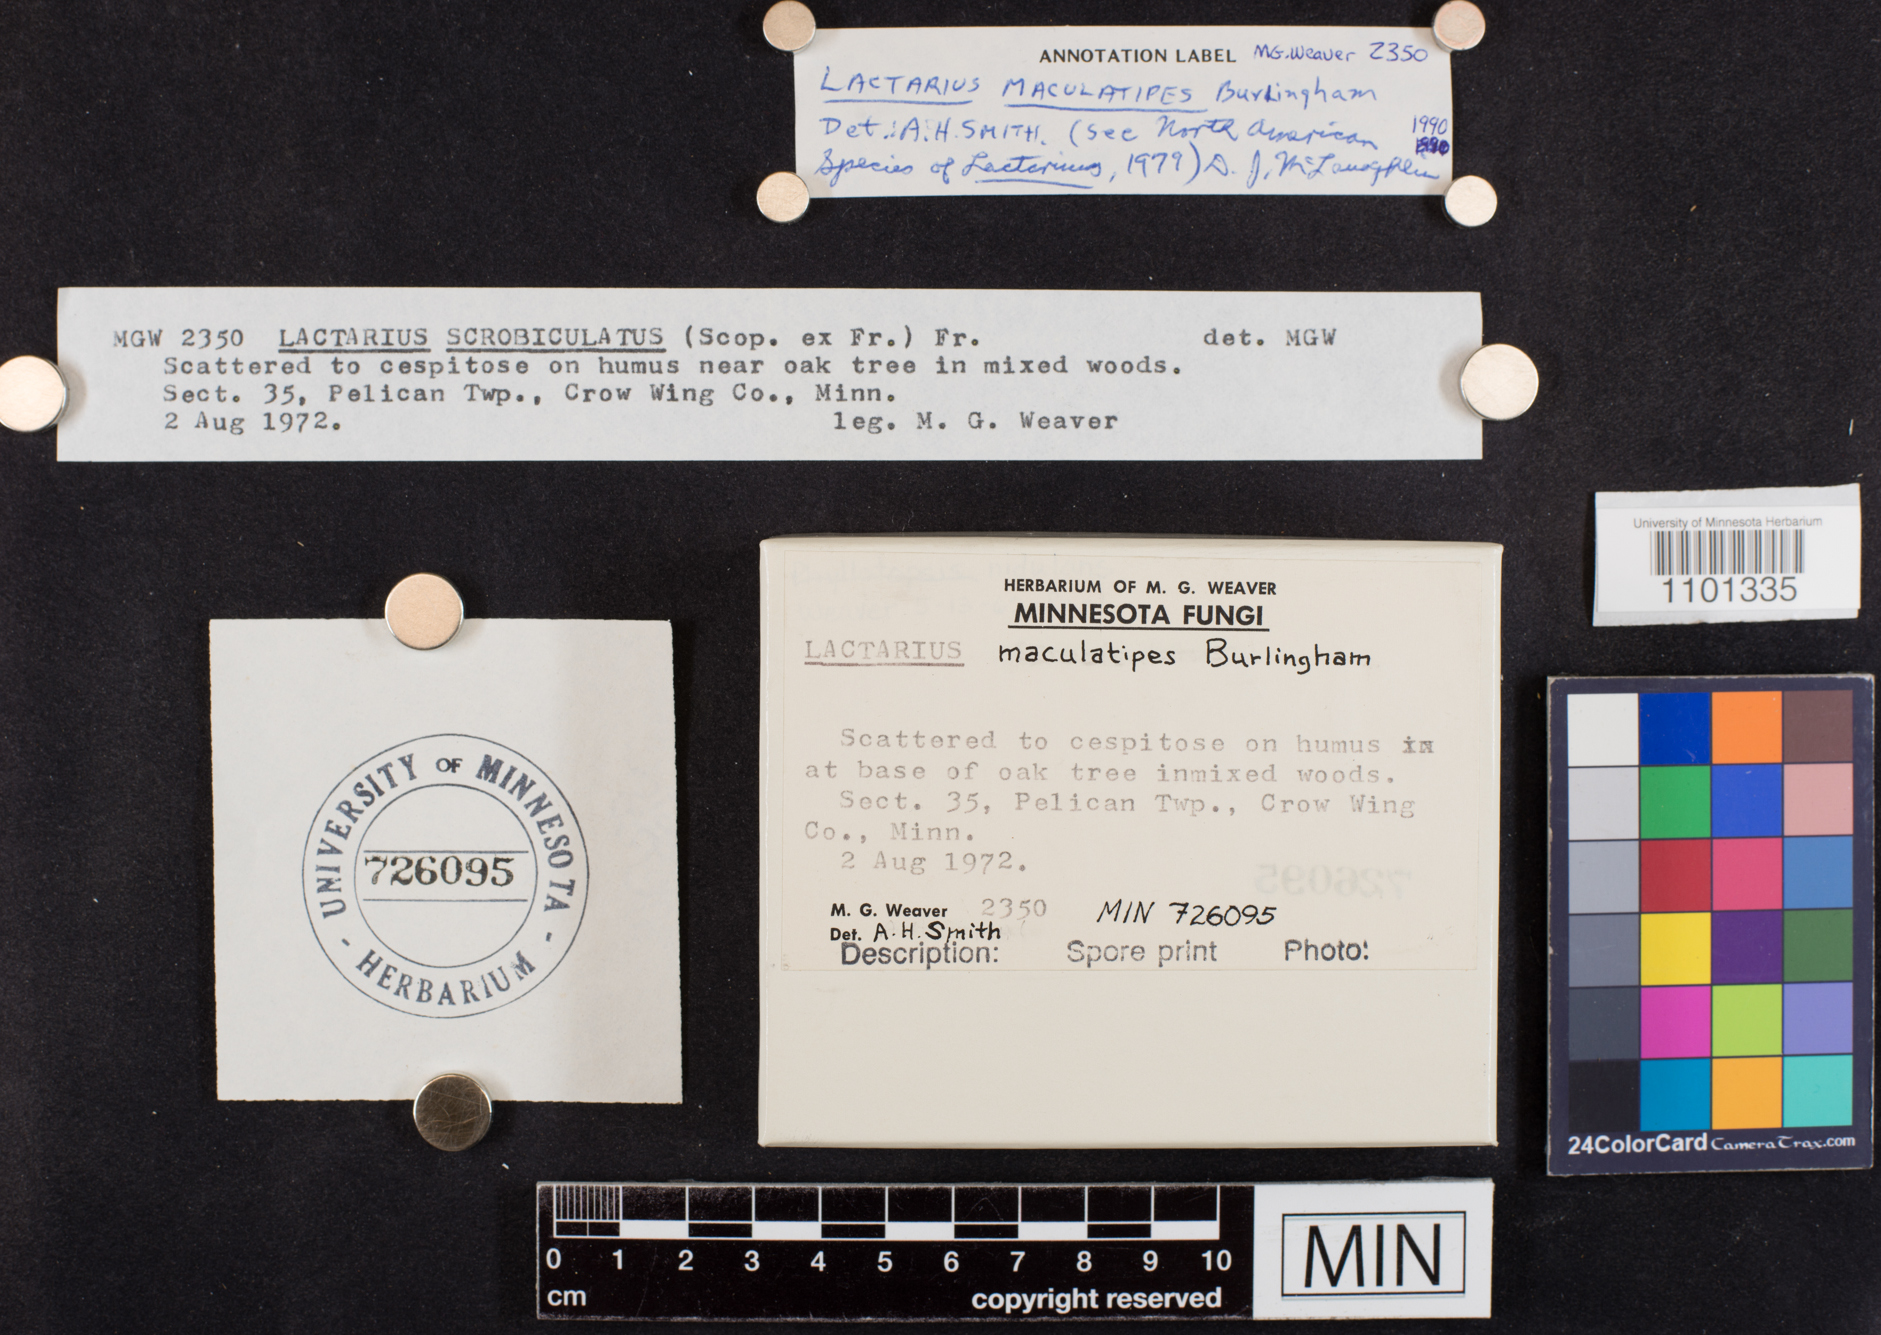 ANNOTATION LABEL MG.Weaver 2350
LACTARIUS MACULATIPES Burlingham
Det.: A.H. SMITH. (see North American 1990
Species of Lactarius, 1979) D. J. McLaughlin
MGW 2350 LACTARIUS SCROBICULATUS (Scop. ex Fr.) Fr. det. MGW
Scattered to cespitose on humus near oak tree in mixed woods.
Sect. 35, Pelican Twp., Crow Wing Co., Minn.
2 Aug 1972. leg. M. G. Weaver
University of Minnesota Herbarium
1101335
UNIVERSITY OF MINNESOTA
726095
- HERBARIUM -
HERBARIUM OF M. G. WEAVER
MINNESOTA FUNGI
LACTARIUS maculatipes Burlingham
Scattered to cespitose on humus in
at base of oak tree inmixed woods.
Sect. 35, Pelican Twp., Crow Wing
Co., Minn.
2 Aug 1972.
726095
M. G. Weaver 2350 MIN 726095
Det. A.H. Smith
Description: Spore print Photo:
24ColorCard CameraTrax.com
0 1 2 3 4 5 6 7 8 9 10
cm copyright reserved
MIN